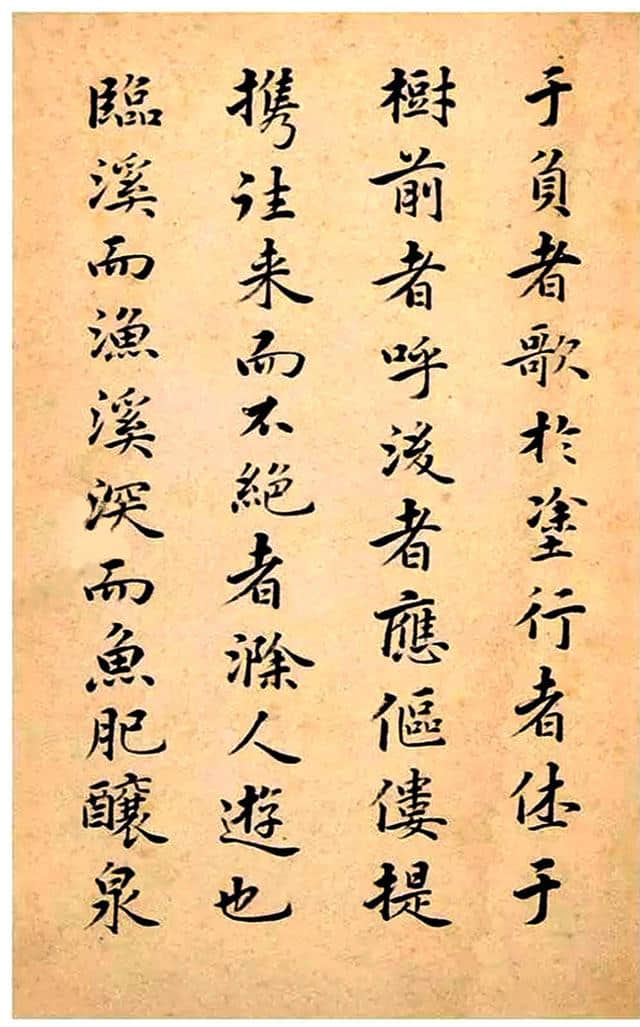 于負者歌於塗行者休于
樹前者呼後者應傴僂提
携往来而不絕者滁人遊也
臨溪而漁溪深而魚肥釀泉